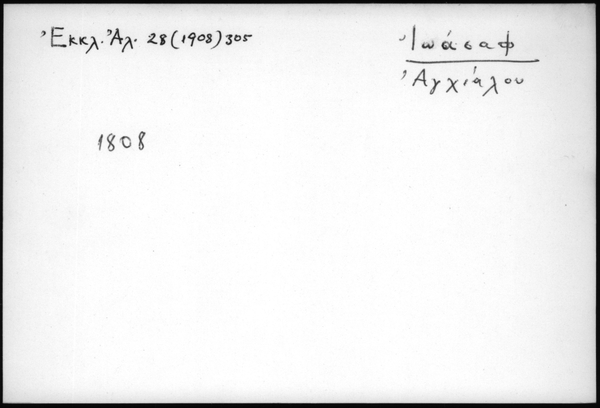 Ἐκκλ. Ἀλ. 28 (1908) 305
Ἰωάσαφ
Ἀγχιάλου
1808